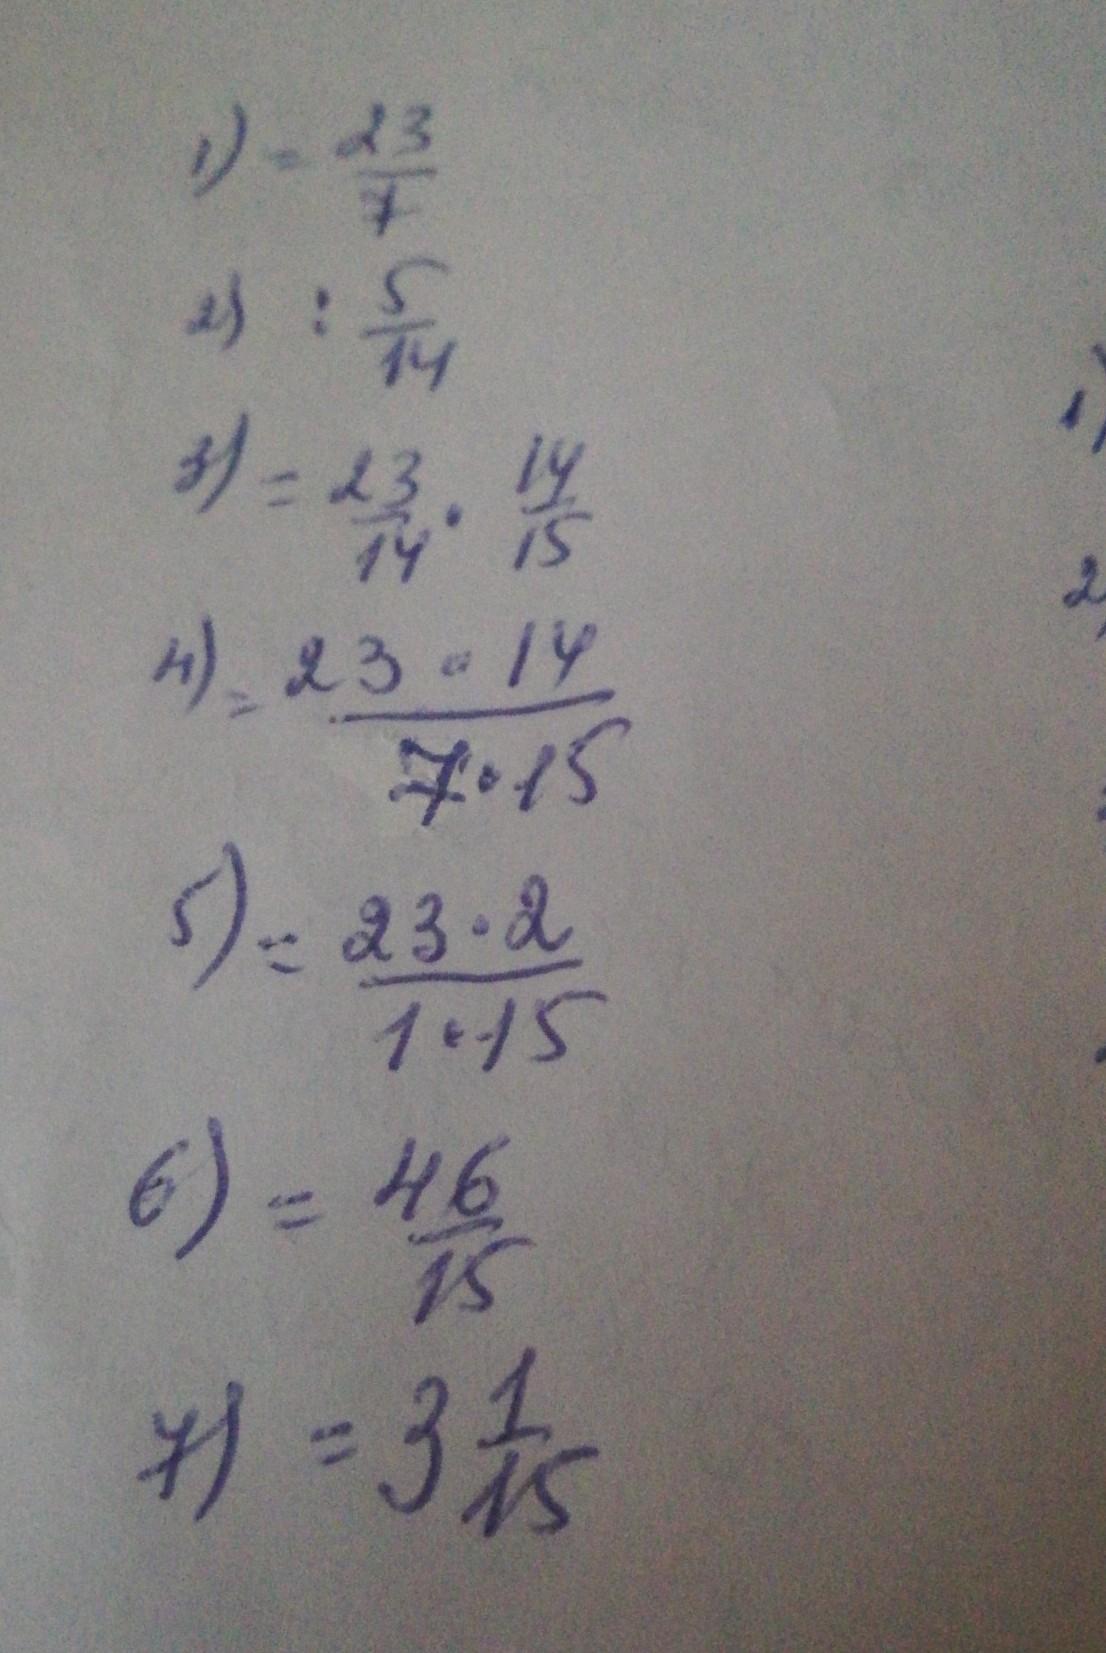 1) = 23/7
2) : 5/14
3) = 23/14 · 14/15
4) = 23 · 14 / 7 · 15
5) = 23 · 2 / 1 · 15
6) = 46/15
7) = 3 1/15
1)
2)